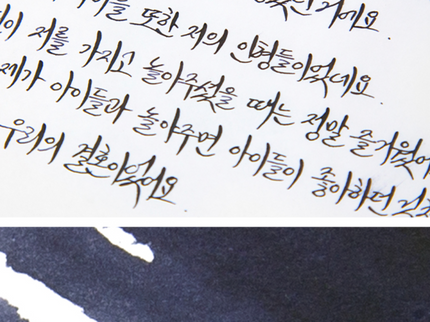 들 또한 저의 인형들이었네요.
저를 가지고 놀아주셨을 때는 정말 즐거웠어
제가 아이들과 놀아주면 아이들이 좋아하던
우리의 결혼이었어요.